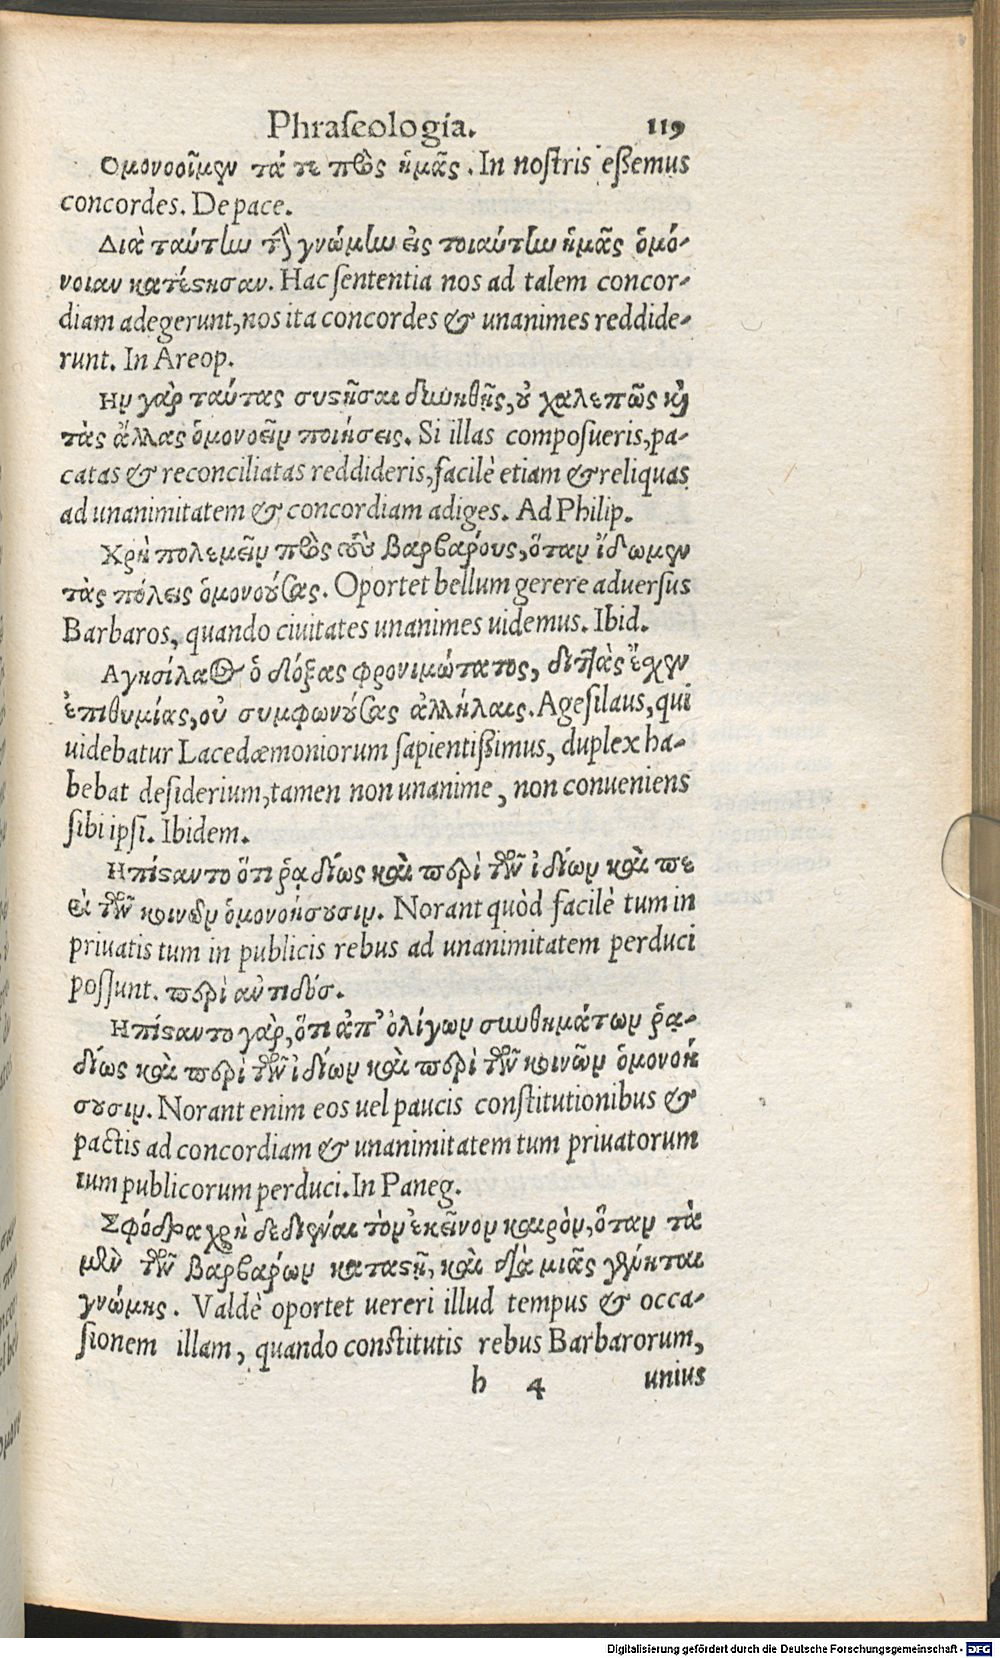 Phraſeologia. 119
Ὁμονοοῖμεν τά τε πρὸς ἡμᾶς . In noſtris eßemus
concordes. De pace.
Διὰ ταύτην τὴν γνώμην εἰς τοιαύτην ἡμᾶς ὁμό-
νοιαν κατέςησαν. Hac ſententia nos ad talem concor-
diam adegerunt, nos ita concordes & unanimes reddide-
runt. In Areop.
Ην γὰρ ταύτας συςῆσαι δυνηθῇς, ȣ χαλεπῶς καὶ
τὰς ἄλλας ὁμονοεῖν ποιήσεις. Si illas compoſueris, pa-
catas & reconciliatas reddideris, facilè etiam & reliquas
ad unanimitatem & concordiam adiges. Ad Philip.
Χρὴ πολεμεῖν πρὸς τοὺς βαρβαρους, ὅταν ἴδωμεν
τὰς πόλεις ὁμονούσας. Oportet bellum gerere aduerſus
Barbaros, quando ciuitates unanimes uidemus. Ibid.
Αγησίλαος ὁ δόξας φρονιμώτατος, διπλὰς ἔχεν
ἐπιθυμίας, οὐ συμφωνούσας ἀλλήλαις. Ageſilaus, qui
uidebatur Lacedæmoniorum ſapientißimus, duplex ha-
bebat deſiderium, tamen non unanime, non conueniens
ſibi ipſi. Ibidem.
Ηπίςαντο ὅτι ῥᾳδίως καὶ περὶ τῶν ἰδίων καὶ πε
ρὶ τῶν κοινῶν ὁμονοήσȣσιν. Norant quòd facilè tum in
priuatis tum in publicis rebus ad unanimitatem perduci
poſſunt. περὶ ἀντιδόσ.
Ηπίςαντο γὰρ, ὅτι ἀπ' ὀλίγων συνθημάτων ῥᾳ-
δίως καὶ περὶ τῶν ἰδίων καὶ περὶ τῶν κοινῶν ὁμονοή
σȣσιν. Norant enim eos uel paucis conſtitutionibus &
pactis ad concordiam & unanimitatem tum priuatorum
tum publicorum perduci. In Paneg.
Σφόδρα χρὴ δεδιέναι τὸν ἐκεῖνον καιρὸν, ὅταν τὰ
μὲν τῶν βαρβαρων καταςῇ, καὶ διὰ μιᾶς γένηται
γνώμης. Valdè oportet uereri illud tempus & occa-
ſionem illam, quando conſtitutis rebus Barbarorum,
h 4 unius
Digitalisierung gefördert durch die Deutsche Forschungsgemeinschaft - DFG